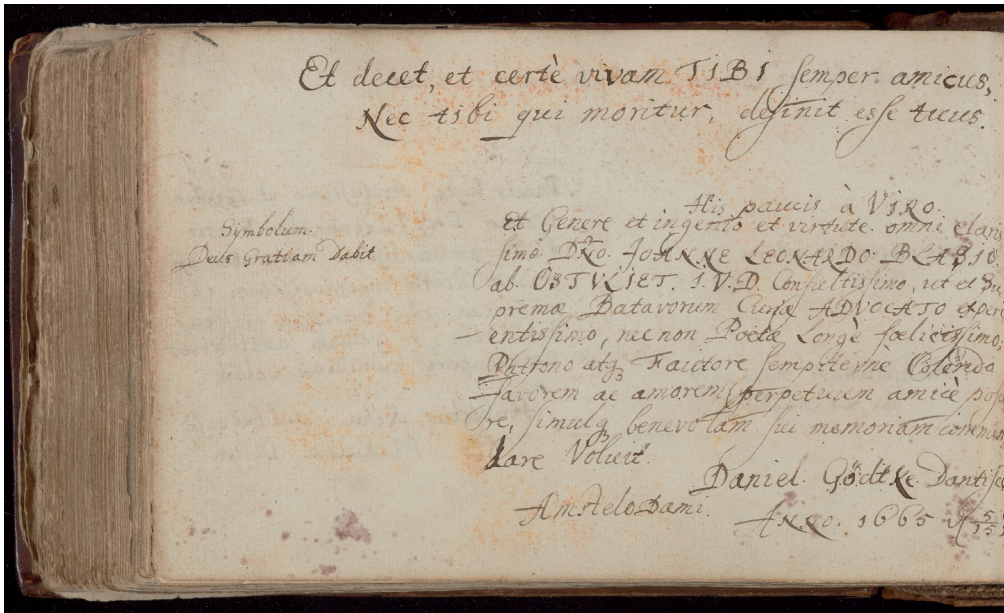 Et decet, et certè vivam TIBI semper amicus,
Nec tibi qui moritur, desinit esse tuus.
His paucis à VIRO
Et Genere et ingenio et virtute omni clari
Symbolum.
Deus Gratiam Dabit
simo DNO. JOANNE LEONARDO BLASIO
ab OSTVLIET. I.V.D. Consultissimo, ut et Su
premæ Batavorum Curiæ ADVOCATO exper
entissimo, nec non Poëta Longè fœlicissimo,
Patrono atq3 Fautore sempiternè Colendo
favorem ac amorem perpetuum amicè pos
re, simulq3 benevolam sui memoriam comm
dare Voluit.
Daniel Gödtke Dantisc
Amstelodami.
Anno. 1665